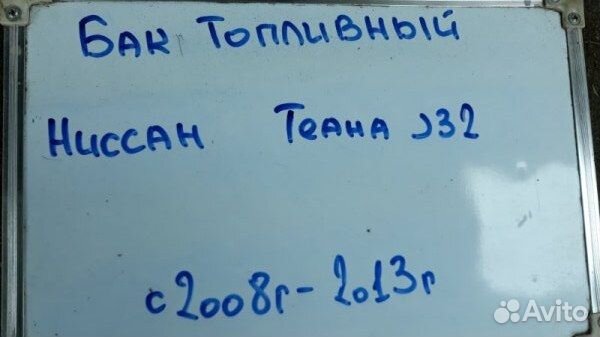 Бак топливный
Ниссан Теана J32
с 2008г - 2013г
Avito